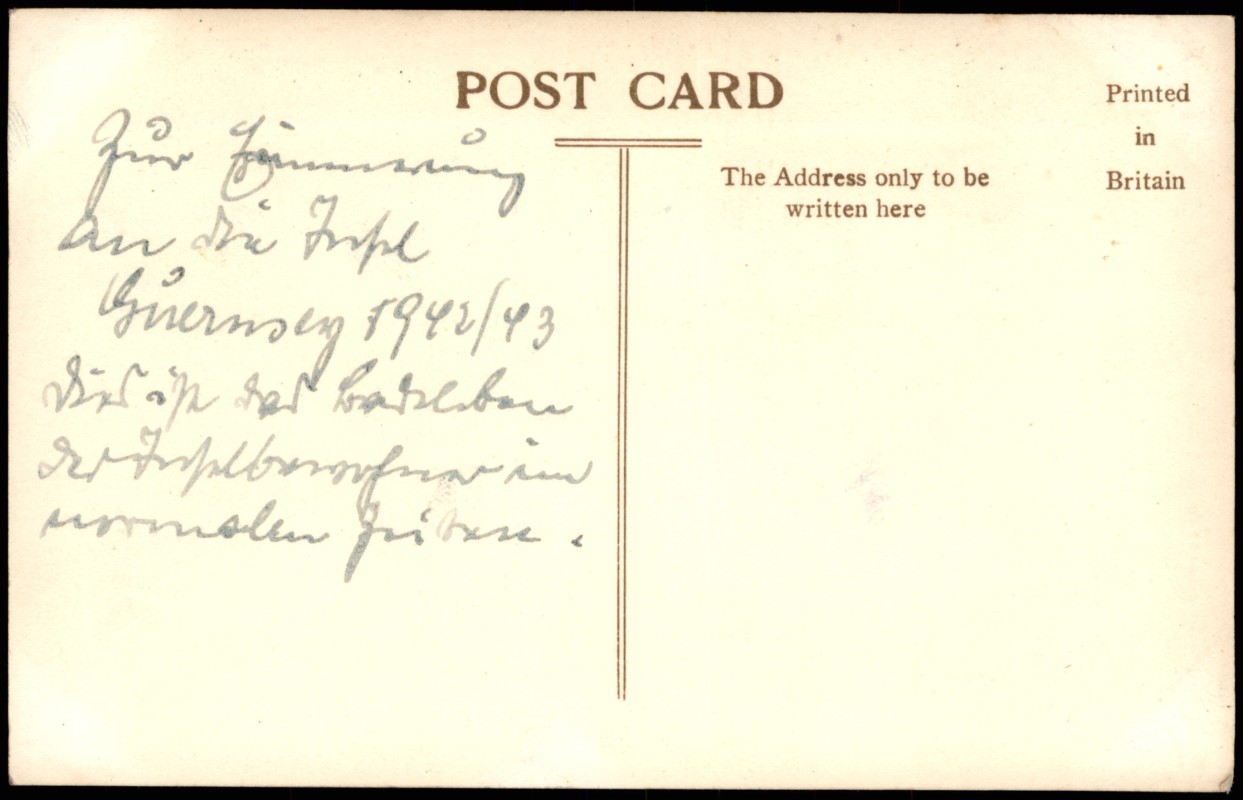 POST CARD
Printed
in
Britain
The Address only to be
written here
Zur Erinnerung
an die Insel
Guernsey 1942/43
Dies ist das Badeleben
der Inselbewohner in
normalen Zeiten.